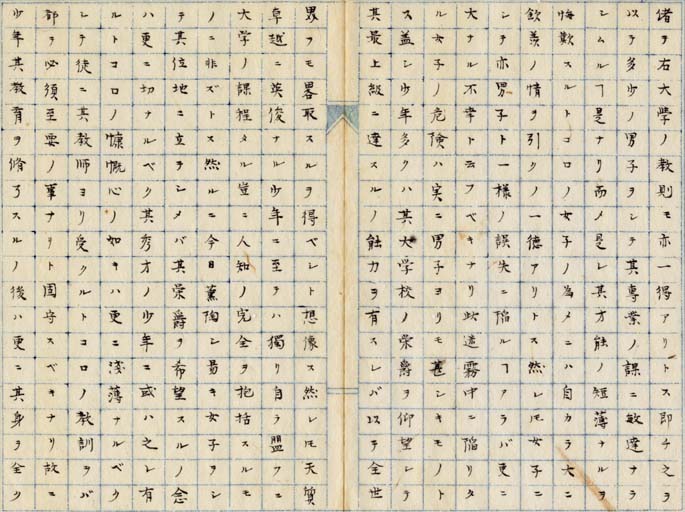 偖ヲ右大學ノ教則モ亦一得アリトス即チ之ヲ
以テ多少ノ男子ヲシテ其專業ノ課ニ敏達ナラ
シムルヿ是ナリ而メ是レ其才能ノ短薄ナルヲ
悔歎スルトコロノ女子ノ為メニハ自カラ大ニ
欽羨ノ情ヲ引クノ一徳アリトス然レ𪜈女子ニ
シテ亦男子ト一様ノ誤失ニ陥ルヿアラバ更ニ
大ナル不幸ト云フベキナリ此迷霧中ニ陥リタ
ル女子ノ危険ハ実ニ男子ヨリモ甚シキモノト
ス盖シ少年多クハ其大学校ノ栄爵ヲ仰望シテ
其最上級ニ達スルノ能力ヲ有スレバ以テ全世
界ヲモ畧取スルヲ得ベシト想像ス然レ𪜈天質
卓越ニ英俊ナル少年ニ至テハ獨リ自ラ盟フニ
大学ノ課程タル豈ニ人知ノ完全ヲ抱括スルモ
ノニ非ズトス然ルニ今日薫陶シ易キ女子ヲシ
テ其位地ニ立タシメバ其栄爵ヲ希望スルノ念
ハ更ニ切ナルベク其秀才ノ少年ニ或ハ之レ有
ルトコロノ慷慨心ノ如キハ更ニ淺薄ナルベク
シテ徒ニ其教師ヨリ受クルトコロノ教訓ヲバ
都テ必須至要ノ事ナリト固守スベキナリ故ニ
少年其教育ヲ脩了スルノ後ハ更ニ其身ヲ全ク